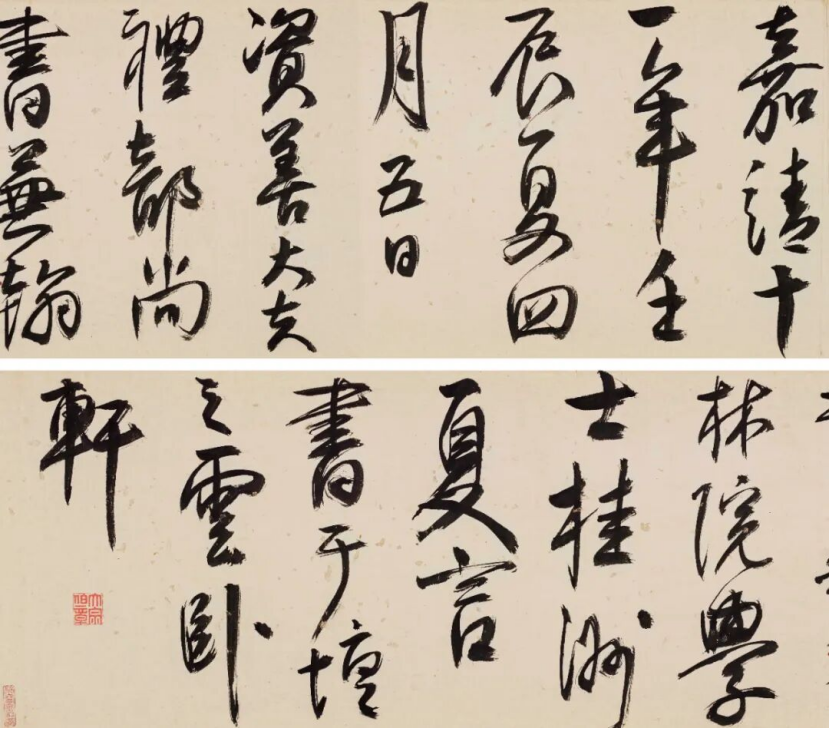 嘉靖十
一年壬
辰夏四
月五日
資善大夫
禮部尚
書兼翰
林院學
士桂洲
夏言
書于壇
之雲卧
軒